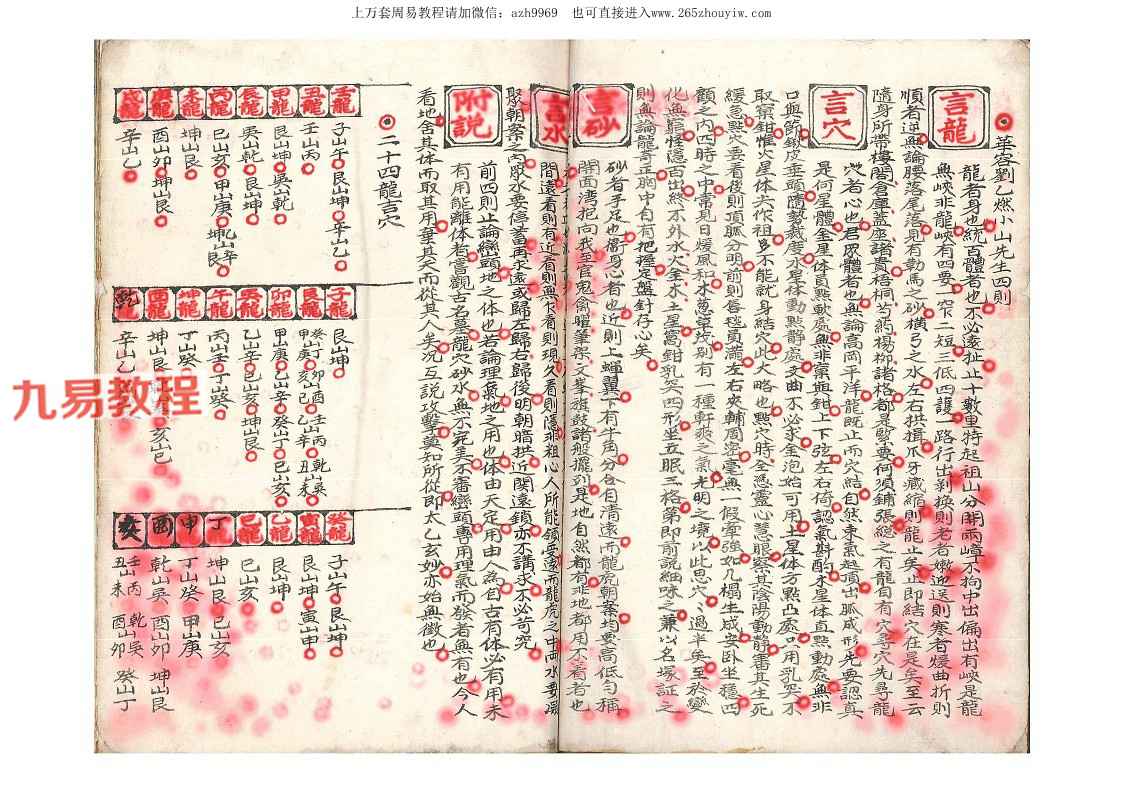 上万套周易教程请加微信：azh9969　也可直接进入www.265zhouyiw.com
華容劉乙燃小山先生四則
言龍
龍者身也統百體者也不必遠扯十數里特起祖山分開兩嶂不拘中出偏出有峽是龍
無峽非龍峽有四要一窄二短三低四護一路行出剝換則老者嫩迎送則寒者煖曲折則
順者逆無論腰落尾落見有勒馬之砂橫弓之水左右拱揖爪牙藏縮則龍止矣止即結穴在是矣至云
隨身所帶樓閣倉庫蓋座諸貴梧桐芍藥楊柳諸格都是緊要何須鋪張總之有龍自有穴尋穴先尋龍
言穴
穴者心也君眾體者也無論高岡平洋龍既止而穴結自然束氣起頂出脈成形先要認真
是何星體金星体員點軟處無非窩與鉗上下弦左右倚認氣斟酌木星体直點動處無非
口與節鍬皮垂頭隨勢裁度水星体動點靜處文曲不必求金泡始可用土星体方點凸處只用乳突不
取窩鉗惟火星体尖作祖多不能就身結穴此大略也點穴時全憑靈心慧眼察其陰陽動靜審其生死
緩急點穴要看後則頂脈分明前則唇毬員灔左右夾輔周密毫無一假牽強如几榻生成安卧坐穩四
顧之內四時之中常見日煖風和木蔥草茂別有一種軒爽之氣光明之境以此思穴過半矣至於變
化無窮怪隱百出終不外水火金木土星窩鉗乳突四形坐立眠三格第即前說細味之兼以名塚証之
則無論龍奇正胸中自有把握定盤針仔心矣
言砂
砂者手足也衛身心者也近則上蟬翼下有牛角分合自清遠而龍虎朝案均要高低勻稱
開面灣抱向我至官鬼禽曜筆架文峯旗鼓諸般擺列是地自然都有非地都用不看者也
言水
間遠看則有近看則無下看則現久看則隱非粗心人所能領受遠而龍虎之中兩水要環
聚朝案之內眾水要停蓄再求遠或歸左歸右歸後明朝暗拱近關遠鎖亦不講求不必苛究
附說
前四則止論巒頭地之体也若論理氣地之用也体由天定用由人為自古有体必有用未
有用能離体者嘗觀古名墓龍穴砂水無不完美不審巒頭專用理氣而發者無有也今人
看地舍其体而取其用棄其天而從其人矣況互說攻擊莫知所從即太乙玄妙亦始無徵也
二十四龍吉穴
壬龍 子山午 艮山坤 辛山乙
丑龍 壬山丙
甲龍 艮山坤 吳山乾
辰龍 吳山乾 艮山坤
丙龍 巳山亥 甲山庚 坤山艮 乙山辛
未龍 坤山艮
庚龍 酉山卯 坤山艮
戌龍 辛山乙
子龍 艮山坤
艮龍 癸山丁 甲山庚 卯山酉 亥山巳 壬山丙 乙山辛 乾山吳 丑山未
卯龍 甲山庚 乙山辛 癸山丁 巳山亥
吳龍 乙山辛 巳山亥 坤山艮
午龍 丙山壬 丁山癸
坤龍 丁山癸
酉龍 坤山艮 亥山巳
乾龍 辛山乙
癸龍 子山午 艮山坤
寅龍 艮山坤 寅山申
乙龍 艮山坤
巳龍 巳山亥
丁 坤山艮 巳山亥
申 丁山癸 甲山庚
酉 乾山吳 酉山卯 坤山艮
亥 壬山丙 丑山未 乾山吳 酉山卯 癸山丁
九易教程